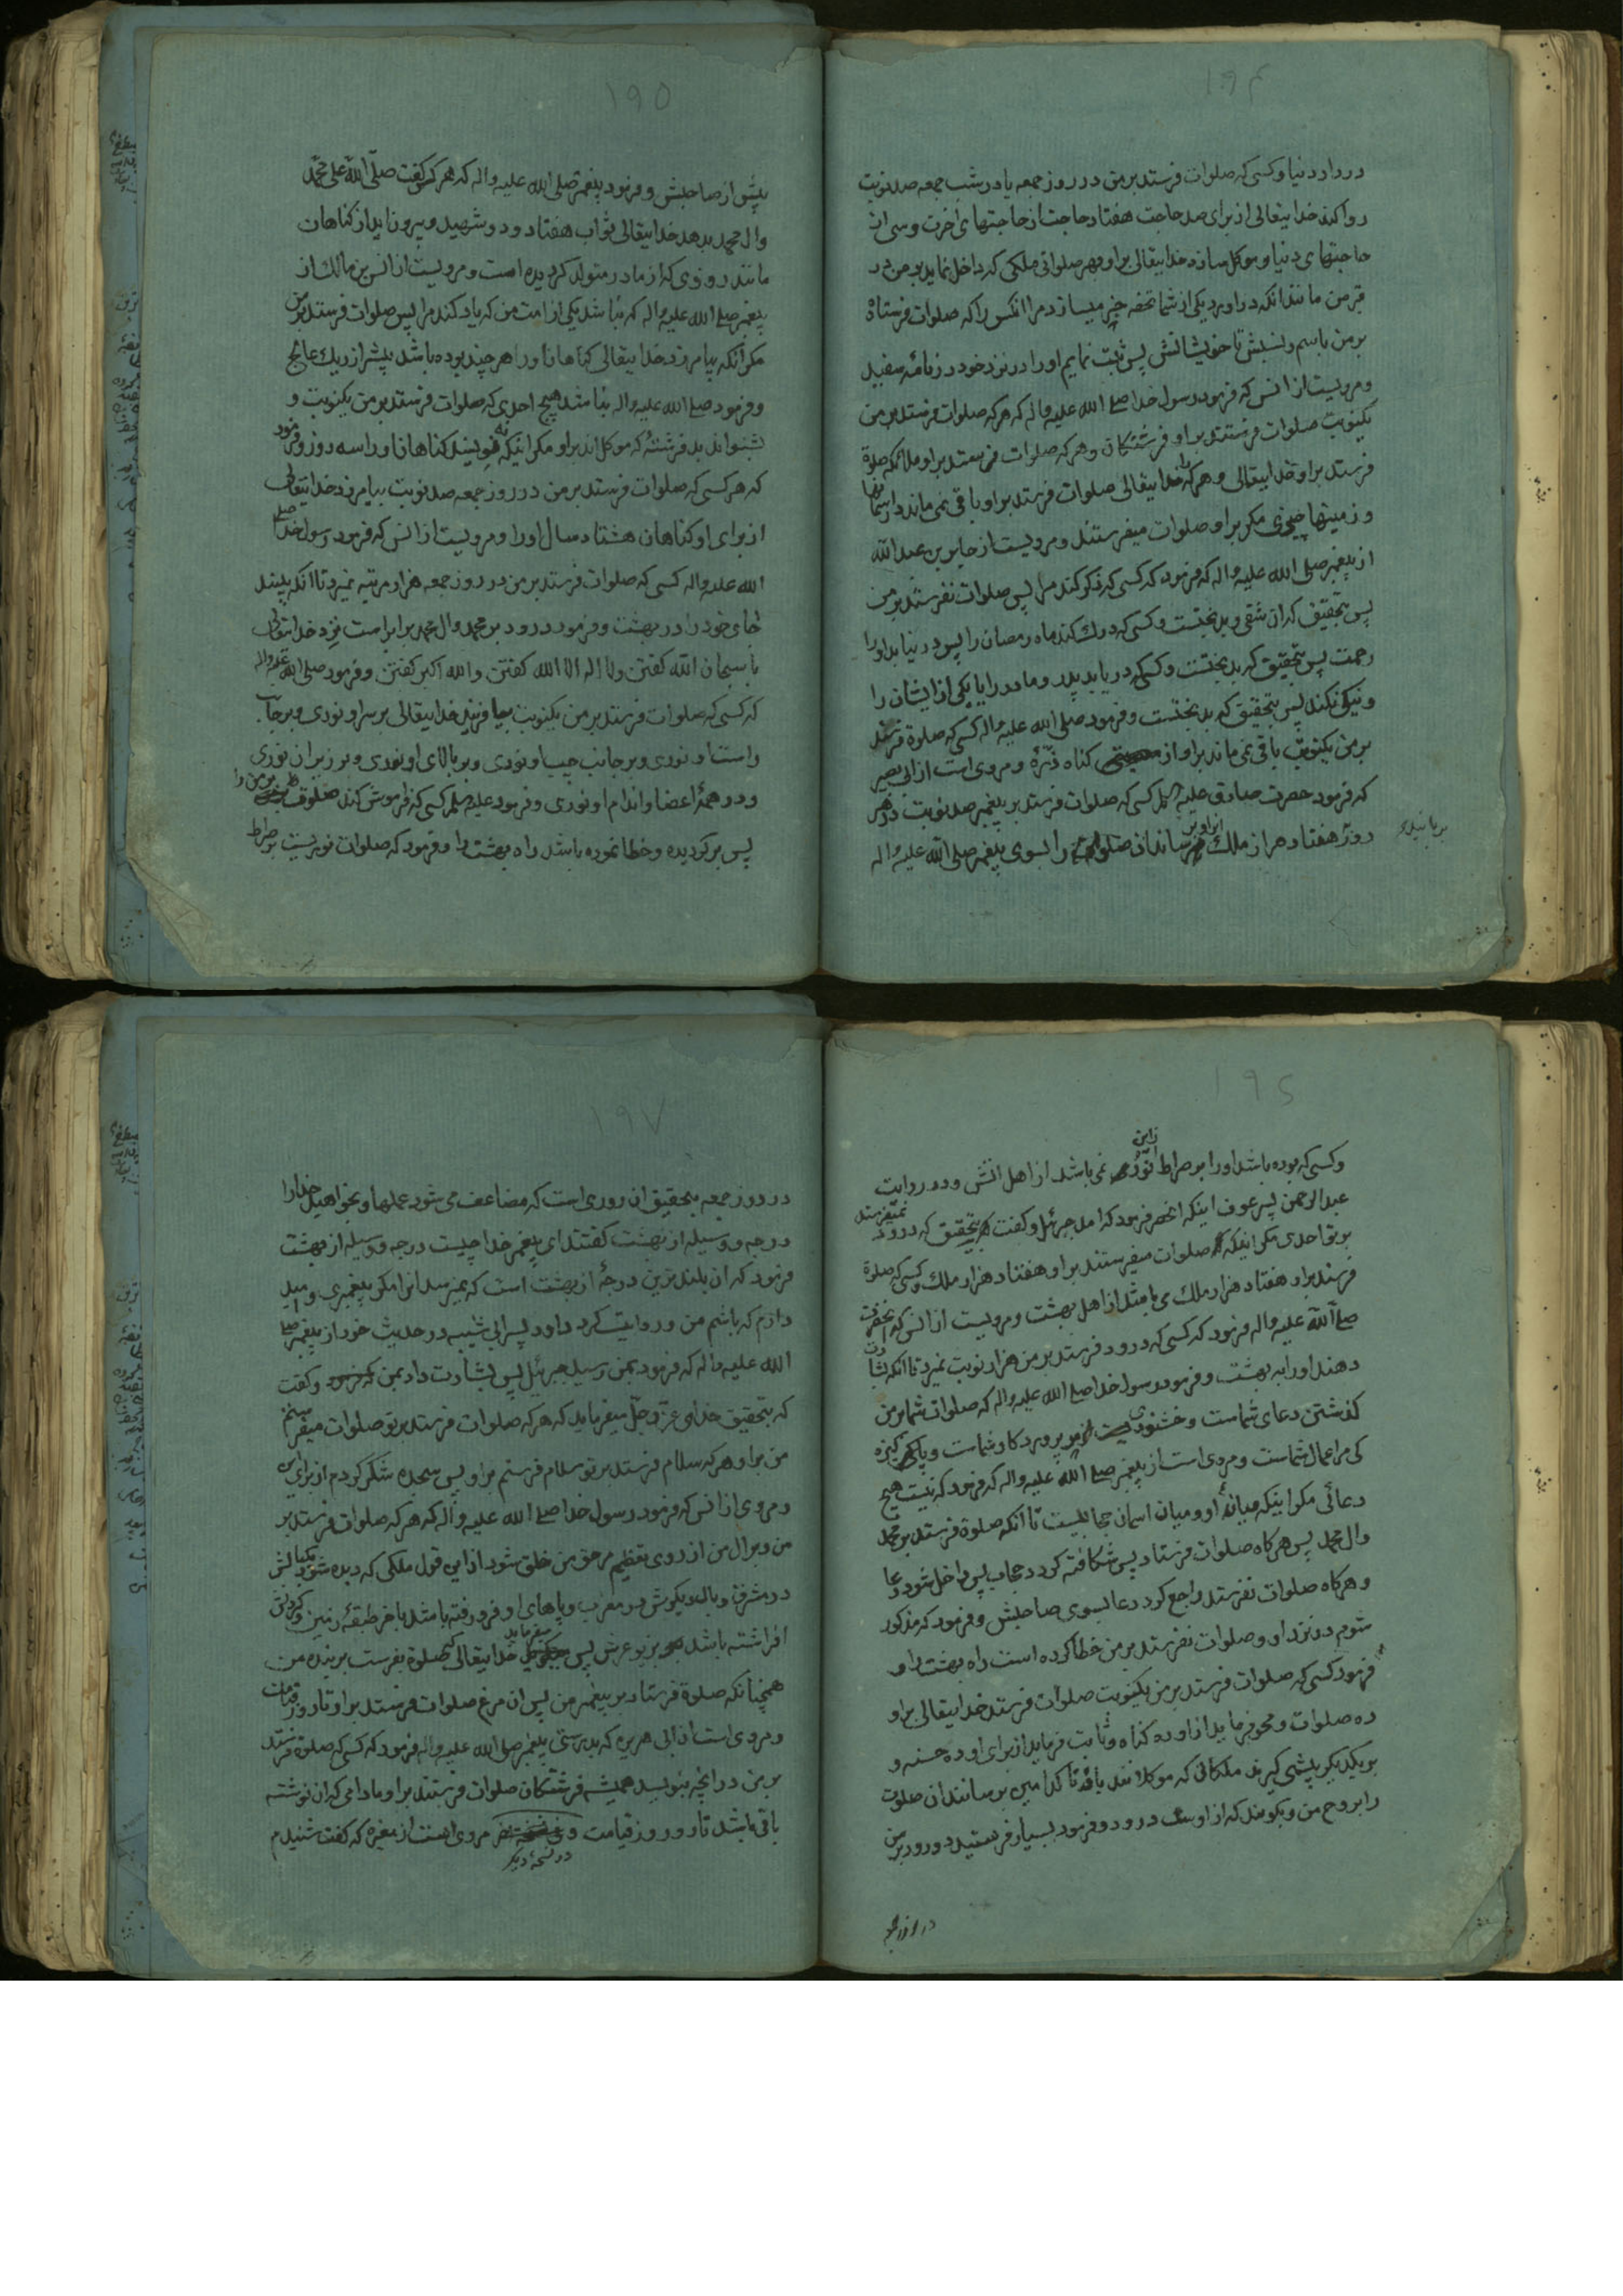 ۱۹۴
در دار دنیا و کسی که صلوات فرستد بر من در روز جمعه یا در شب جمعه صد نوبت
روا کند خدایتعالی از برای صد حاجت هفتاد حاجت از حاجتهای اخرت و سی از
حاجتهای دنیا و موکل سازد خدایتعالی براو بهر صلواتی ملکی که داخل نماید بر من در
قبر من مانند انکه در اورد یکی از شما تحفه خبر میسازد مرا انکس را که صلوات فرستاد
بر من باسم و نسبش تا خویشانش پس ثبت نمایم او را در نزد خود در نامه سفید
و مرویست از انس که فرمود رسول خدا صلی الله علیه و اله که هر که صلوات فرستد بر من
یکنوبت صلوات فرستند براو فرشتگان و هر که صلوات فرستد براو ملائکه صلوة
فرستد براو خدایتعالی و هر که را خدایتعالی صلوات فرستد براو باقی نمی ماند در اسمانها
و زمینها چیزی مکر براو صلوات میفرستند و مرویست از جابر بن عبد الله
از پیغمبر صلی الله علیه و اله که فرمود که کسی که ذکر کند مرا پس صلوات نفرستد بر من
پس بتحقیق که ان شقی و بدبختست و کسی که درک کند ماه رمضان را پس در نیابد او را
رحمت پس بتحقیق که بدبختست و کسی که دریابد پدر و مادر را یا یکی از ایشان را
و نیکی نکند پس بتحقیق که بدبختست و فرمود صلی الله علیه و اله کسی که صلوة فرستد
بر من یکنوبت باقی نمی ماند براو از کناه ذرّهٔ و مروی است از ابی بصیر
که فرمود حضرت صادق علیه کسی که صلوات فرستد بر پیغمبر صد نوبت در هر
روز هفتاد هزار ملک رسانند ان صلوات را بسوی پیغمبر صلی الله علیه و اله
۱۹۵
پیش از صاحبش و فرمود پیغمبر صلی الله علیه و اله که هر کس کفت صلّی الله علی محمّد
وال محمد بدهد خدایتعالی ثواب هفتاد و دو شهید و بیرون اید از کناهان
مانند روزی که از مادر متولد کردیده است و مرویست از انس بن مالک از
پیغمبر صلی الله علیه و اله که نباشد یکی از امت من که یاد کند مرا پس صلوات فرستد بر من
مکر انکه بیامرزد خدایتعالی کناهان او را هر چند بوده باشد بیشتر از ریک عالج
و فرمود صلی الله علیه و اله نباشد هیچ احدی که صلوات فرستد بر من یکنوبت و
بشنواند بد و فرشتهٔ که موکل اند براو مکر اینکه نه نویسند کناهان او را سه روز و فرمود
که هر کسی که صلوات فرستد بر من در روز جمعه صد نوبت بیامرزد خدایتعالی
از برای او کناهان هشتاد سال او را و مرویست از انس که فرمود رسول خدا صلی
الله علیه و اله کسی که صلوات فرستد بر من در روز جمعه هزار مرتبه نمیرد تا انکه ببیند
جای خود را در بهشت و فرمود درود بر محمد و ال محمد برابر است نزد خدایتعالی
با سبحان الله کفتن و لا اله الا الله کفتن و الله اکبر کفتن و فرمود صلی الله علیه و اله
که کسی که صلوات فرستد بر من یکنوبت بیافریند خدایتعالی بر سر او نوری و بر جانب
راست او نوری و بر جانب چپ او نوری و بر بالای او نوری و بر زیر ان نوری
و در همهٔ اعضا و اندام او نوری و فرمود علیه کسی که فراموش کند صلوة بر من را
پس برکردیده و خطا نموده باشد راه بهشت را و فرمود که صلوات نوریست بر صراط
۱۹۶
و کسی که بوده باشد او را بر صراط از این نور نمی باشد از اهل اتش و در روایت
عبد الرحمن پسر عوف اینکه انحضر فرمود که امد جبرئیل و کفت بتحقیق که درود نمیفرستد
بر تو احدی مکر اینکه صلوات میفرستند براو هفتاد هزار ملک و کسی که صلوة
فرستد براو هفتاد هزار ملک می باشد از اهل بهشت و مرویست از انس که انحضرت
صلی الله علیه و اله فرمود که کسی که درود فرستد بر من هزار نوبت نمیرد تا انکه بشارت
دهند او را به بهشت و فرمود رسول خدا صلی الله علیه و اله که صلوات شما بر من
کذشتن دعای شماست و خشنودی پروردکار شماست و پاکیزه
کی مر اعمال شماست و مروی است از پیغمبر صلی الله علیه و اله که فرمود که نیست هیچ
دعائی مکر اینکه میانهٔ او و میان اسمان حجابیست تا انکه صلوة فرستد بر محمد
وال محمد پس هر کاه صلوات فرستاد پس شکافته کردد حجاب پس داخل شود دعا
و هر کاه صلوات نفرستد راجع کردد دعا بسوی صاحبش و فرمود که مذکور
شوم در نزد او و صلوات نفرستد بر من خطا کرده است راه بهشت را و
فرمود کسی که صلوات فرستد بر من یکنوبت صلوات فرستد خدایتعالی براو
ده صلوات و محو فرماید از او ده کناه و ثابت فرماید از برای او ده حسنه و
بر یکدیکر پیشی کیرند ملکانی که موکلانند باو تا کدامین برسانند ان صلوت
را بروح من و بکویند که از اوست درود و فرمود بسیار فرستید درود بر من
در روز جمعه
۱۹۷
در روز جمعه بتحقیق ان روزی است که مضاعف می شود عملها و بخواهید خدا را
درجه و وسیله از بهشت کفتند ای پیغمبر خدا چیست درجه و وسیله از بهشت
فرمود که ان بلندترین درجهٔ از بهشت است که نمیرسد انرا مکر پیغمبری و امید
دارم که باشم من و روایت کرد داود پسر ابی شیبه در حدیث خود از پیغمبر صلی
الله علیه و اله که فرمود بمن رسید جبرئیل پس بشارت داد بمن و کفت
که بتحقیق خدای عزّ و جلّ میفرماید که هر که صلوات فرستد بر تو صلوات میفرستم
من براو و هر که سلام فرستد بر تو سلام فرستم براو پس سجده شکر کردم از برای این
و مروی از انس که فرمود رسول خدا صلی الله علیه و اله که هر که صلوات فرستد بر
من و بر ال من از روی تعظیم مر حق من خلق شود از این قول ملکی که دیده شود یکبالش
در مشرق و بال دیکرش در مغرب و پاهای او فرو رفته باشد باخر طبقهٔ زمین و کردنش
افراشته باشد بزیر عرش پس میفرماید خدایتعالی که صلوة بفرست بر بنده من
همچنانکه صلوة فرستاد بر پیغمبر من پس ان مرغ صلوات فرستد براو تا روز قیامت
و مروی است از ابی هریره که بدرستی پیغمبر صلی الله علیه و اله فرمود که کسی که صلوة فرستد
بر من در انچه بنویسد همیشه فرشتکان صلوات فرستند براو مادامی که ان نوشته
باقی باشد تا روز قیامت و در نسخهٔ دیکر مروی است از مغیره که کفت شنیدم